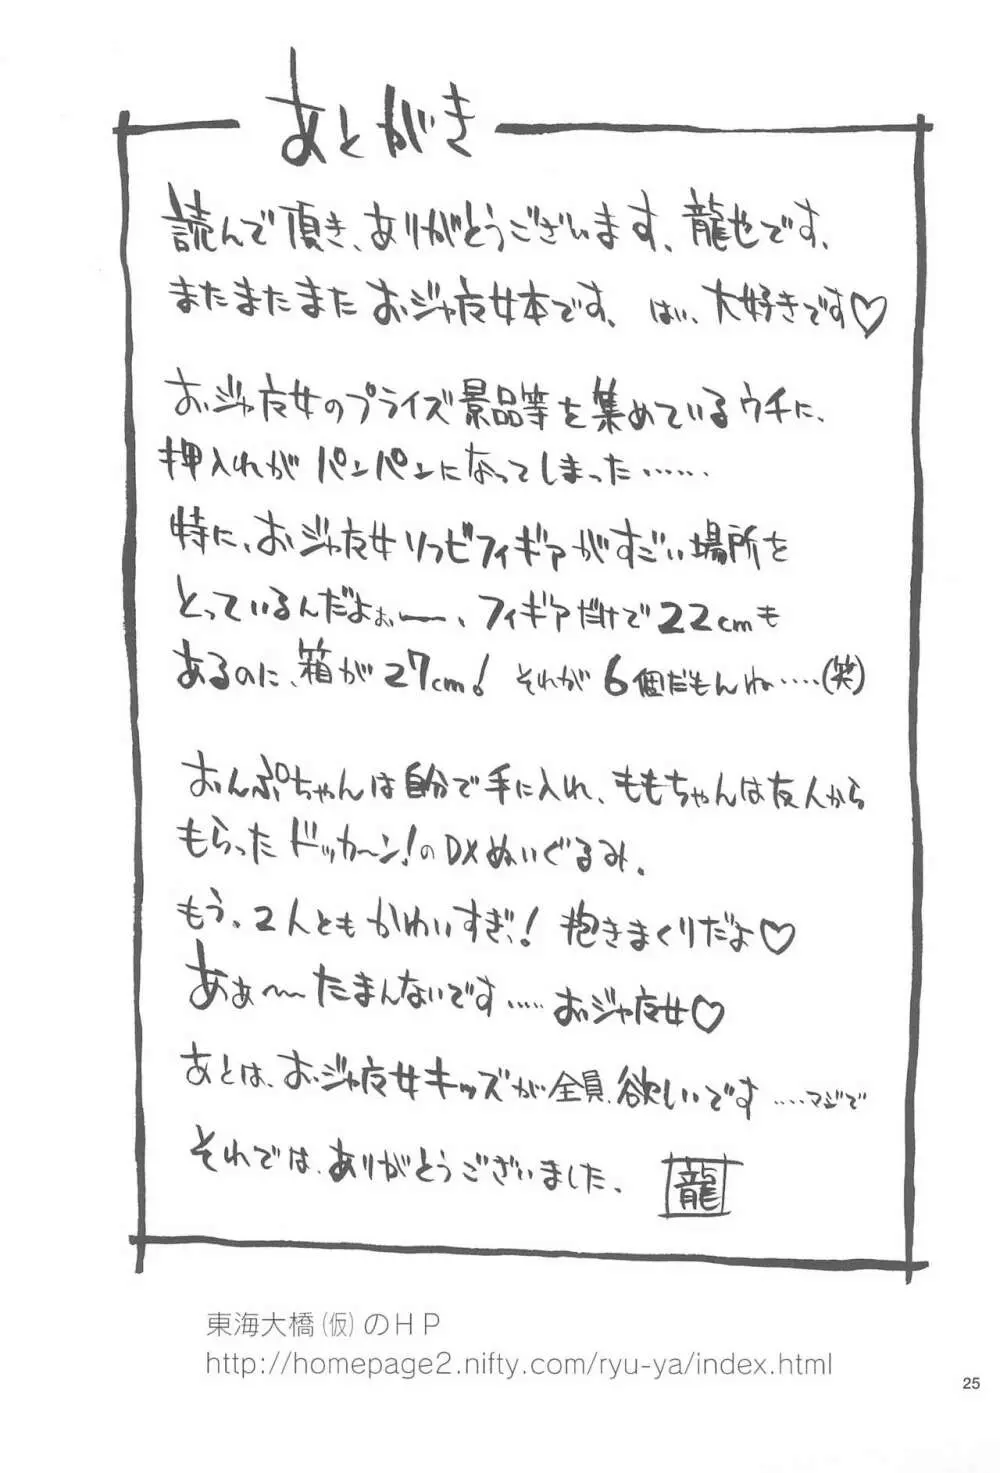 あとがき
読んで頂き、ありがとうございます、龍也です、
またまたまた おジャ魔女本です、はい、大好きです♡
おジャ魔女のプライズ景品等を集めているウチに、
押入れがパンパンになってしまった……
特に、おジャ魔女ソフビフィギアがすごい場所を
とっているんだよぉー、フィギアだけで22cmも
あるのに、箱が27cm! それが6個だもんね……(笑)
おんぷちゃんは自分で手に入れ、ももちゃんは友人から
もらったドッカ〜ン!のDXぬいぐるみ。
もう、2人ともかわいすぎ! 抱きまくりだよ♡
あぁ〜たまんないです……おジャ魔女♡
あとは、おジャ魔女キッズが全員、欲しいです……マジで
それでは、ありがとうございました。 龍
東海大橋(仮)のHP
http://homepage2.nifty.com/ryu-ya/index.html
25